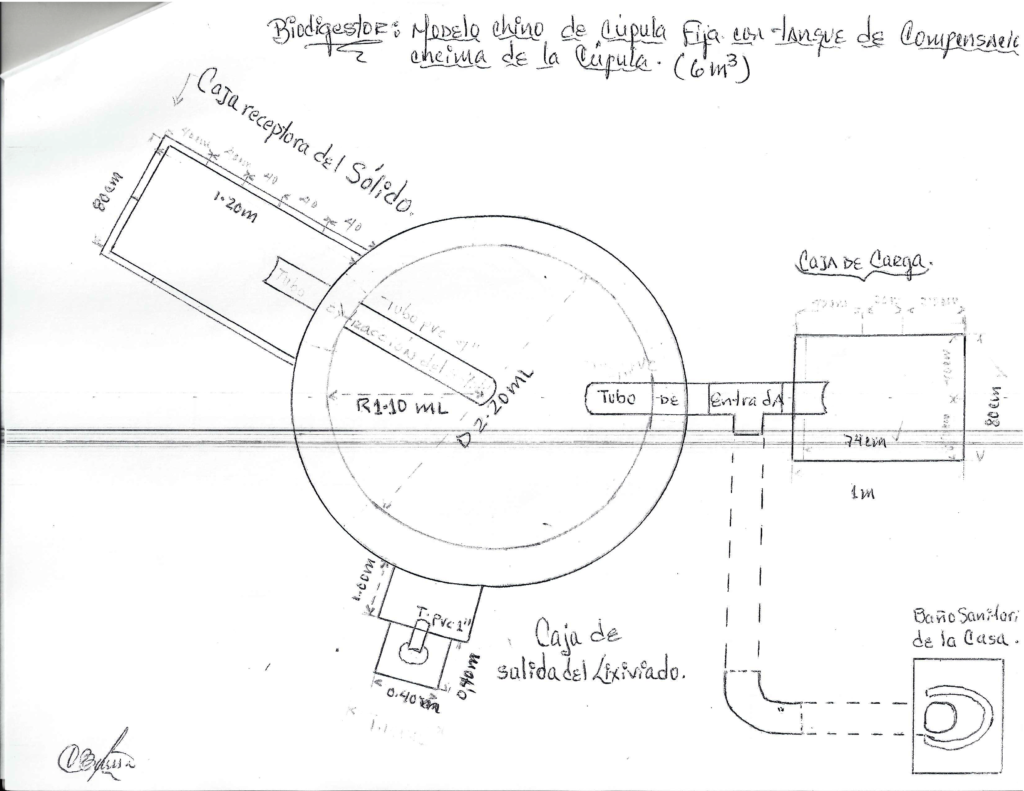 Biodigestor: Modelo chino de Cúpula Fija con tanque de Compensaci
encima de la Cúpula. (6 m³)
Caja receptora del Sólido.
80cm
1.20m
40
20
40
Tubo PVC
Tubo extracción del
R1.10 mL
D 2.20mL
Tubo DE Entrada
CAJA DE Carga.
80cm
74cm
1m
1.00m
T. PVC 1"
0.40cm
0,40m
Caja de
salida del Lixiviado.
Baño Sanitari
de la Casa.